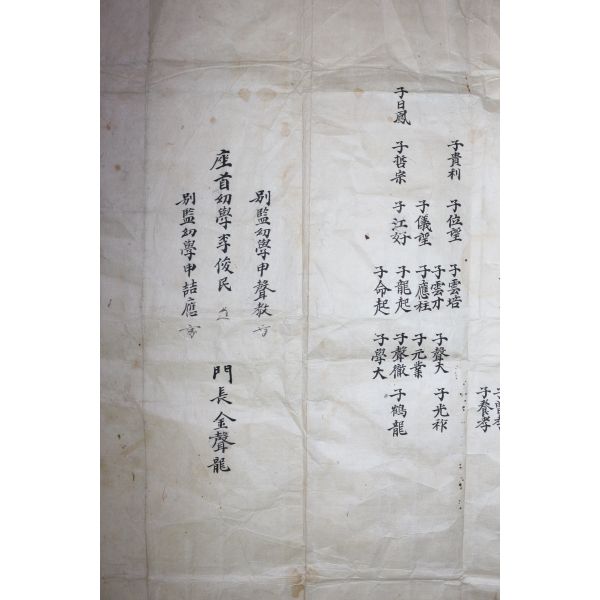 子曾孝
子養孝
子貴利
子位望
子雲培
子雲才
子聲大
子光祚
子儀望
子應柱
子元業
子日鳳
子哲宗
子江好
子龍起
子聲徹
子鶴龍
子命起
子學大
別監幼學申聲教
座首幼學李俊民
門長金聲龍
別監幼學申喆應